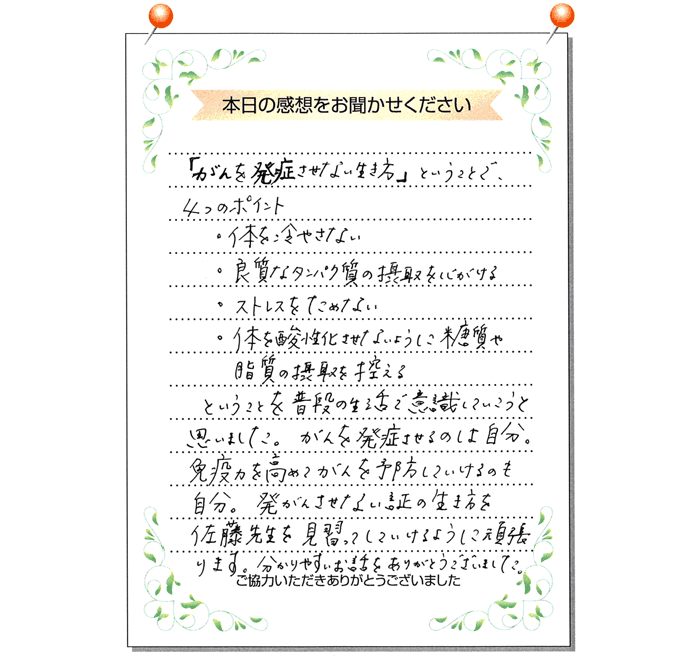 本日の感想をお聞かせください
「がんを発症させない生き方」ということで、
4つのポイント
・体を冷やさない
・良質なタンパク質の摂取を心がける
・ストレスをためない
・体を酸性化させないように糖質や
脂質の摂取を控える
ということを普段の生活で意識していこうと
思いました。がんを発症させるのは自分。
免疫力を高めてがんを予防していけるのも
自分。発がんさせない証の生き方を
佐藤先生を見習ってしていけるように頑張
ります。分かりやすいお話をありがとうございました。
ご協力いただきありがとうございました